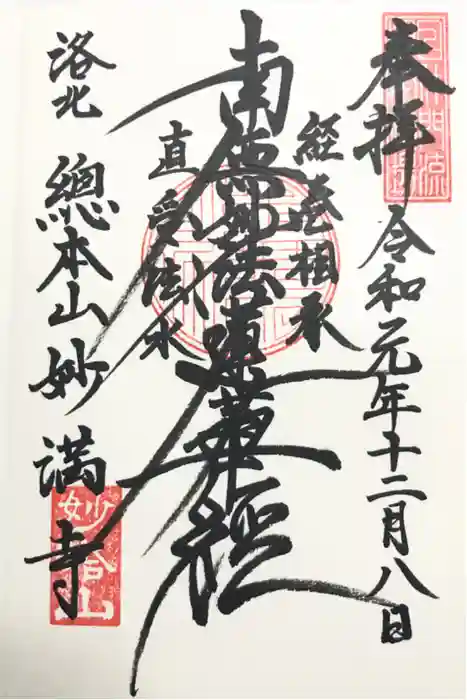 奉拝
令和元年十二月八日
経巻相承
南無妙法蓮華経
直受法水
洛北
總本山妙満寺